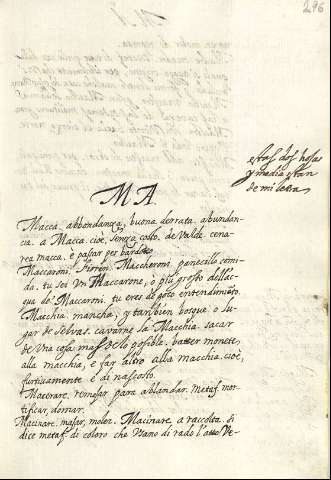 296
estas dos hojas
y media estan
de mi letra
MA.
Macca. abbondanza, buona derrata. abundan-
cia. a Macca. cioè, senza costo. de valde. cena-
rea macca. è pasar per bardito
Maccaroni. Fioren. Maccheroni. panecillo comi-
da. tu sei Un Maccarone, o più grosso dell'ac-
qua de' Maccaroni. tu eres de poco entendimiento.
Macchia. mancha, y tanbien bosque. o lu-
gar de selvas. cavarne la Macchia. sacar
de Una cosa mas dello posible. batter monete
alla macchia, e far altro alla macchia. cioè,
furtivamente e di nascosto.
Macerare. remojar para ablandar. metaf. mor-
tificar, domar.
Macinare, majar, moler. Macinare a raccolta. si
dice metaf. di coloro che Usano di rado l'atto Ve-